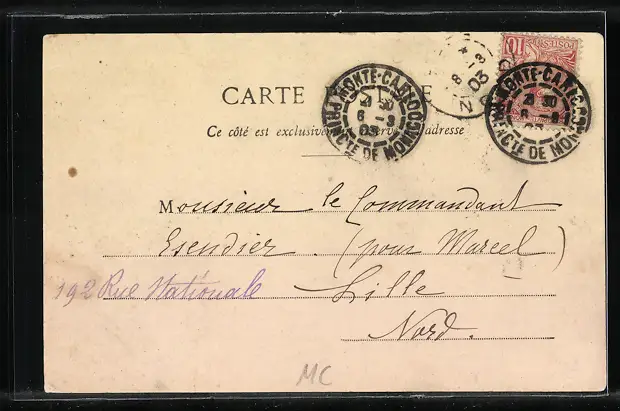 CARTE
Ce côté est exclusivem adresse
MONTE-CARLO
21 30
6 -3
03
PRINCTE DE MONACO
8 -3
03
10
MONTE-CARLO
21 30
6 -3
03
PRINCTE DE MONACO
Monsieur le Commandant
Esendier. (pour Marcel)
192 Rue Nationale Lille
Nord.
MC